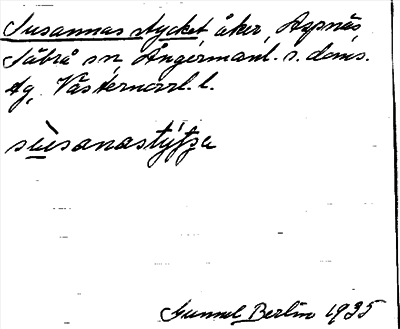 Susannas stycket åker, Aspnäs
Säbrå sn, Ångermanl. s. doms.
tg, Västernorrl. l.
sùsanastýtja
Gunnel Berlin 1935